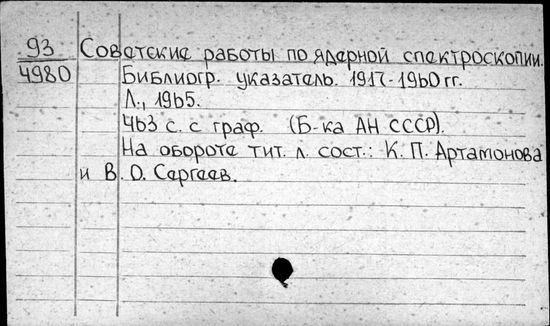 93 Советские работы по ядерной спектроскопии.
4980 Библиогр. указатель. 1917-1960 гг.
Л., 1965.
463 с. с граф. (Б-ка АН СССР).
На обороте тит. л. сост.: К. П. Артамонова
и В. О. Сергеев.